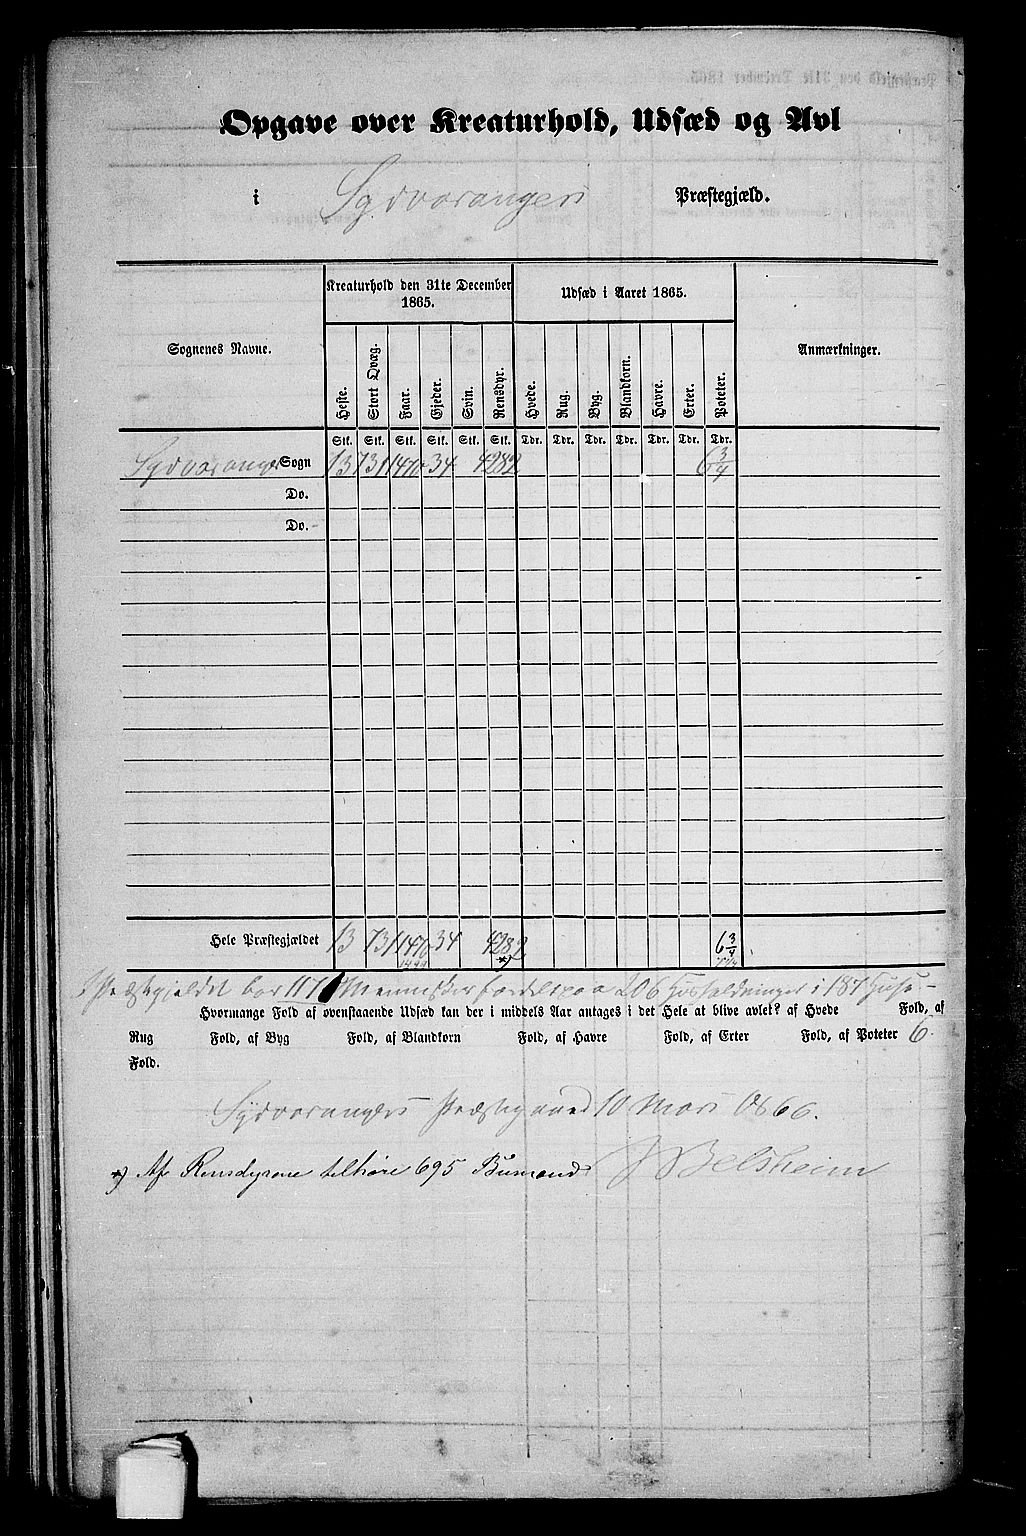 Opgave over Kreaturhold, Udsæd og Avl
i Sydvarangers Præstegjæld.
Sognenes Navne. Kreaturhold den 31te December 1865. Udsæd i Aaret 1865. Anmærkninger.
Heste. Stort Qvæg. Faar. Gjeder. Svin. Rensdyr. Hvede. Rug. Byg. Blandkorn. Havre. Erter. Poteter.
Stk. Stk. Stk. Stk. Stk. Stk. Tdr. Tdr. Tdr. Tdr. Tdr. Tdr. Tdr.
Sydvaranger Sogn 13 731 1470 34 4282 6 3/4
Do.
Do.
Hele Præstegjældet 13 731 1470 34 4282 6 3/4
*)
Præstegjeldet bor Mennesker fordelt paa 206 Husholdninger i 187 Huse.–
Hvormange Fold af ovenstaaende Udsæd kan der i middels Aar antages i det Hele at blive avlet? af Hvede Fold, af
Rug Fold, af Byg Fold, af Blandkorn Fold, af Havre Fold, af Erter Fold, af Poteter 6.
Fold.
Sydvarangers Præstegaard 10 Mars 1866.
JBelsheim
*) Af Rensdyrene tilhøre 695 Bumænd